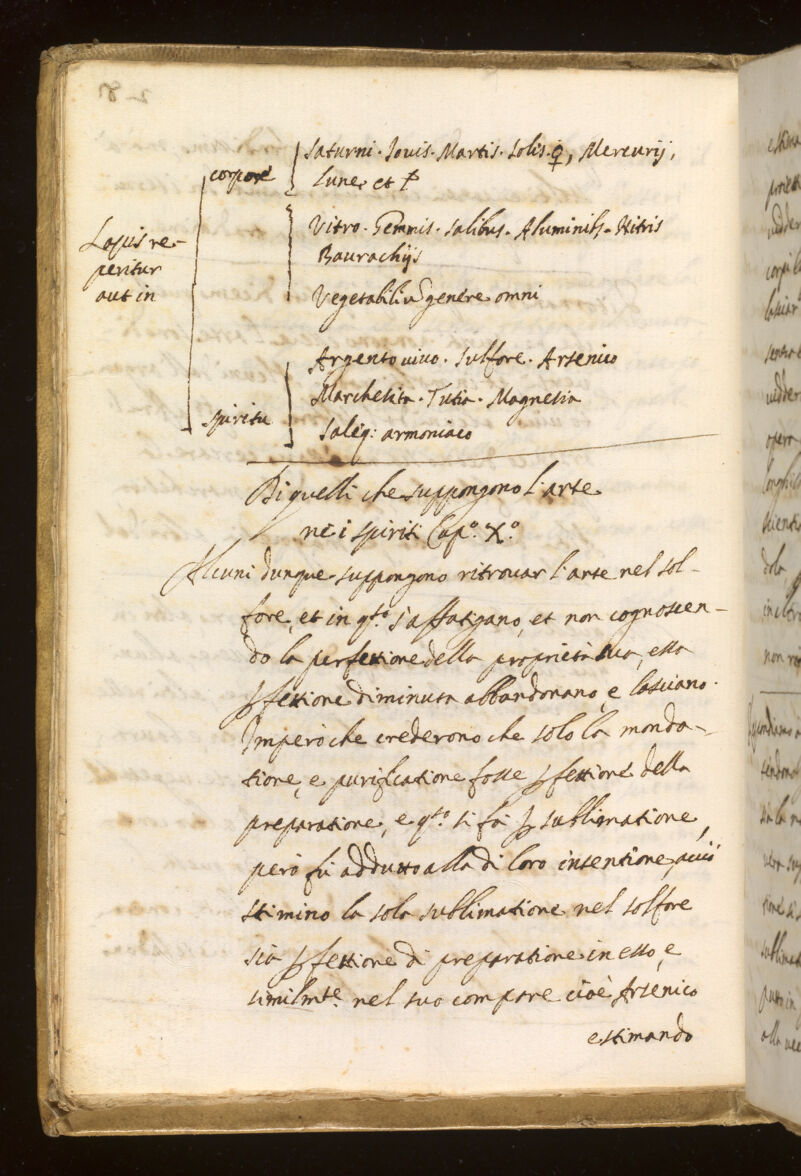 28
Saturni. Jovis. Martis. Solis. ♀, Mercurij,
Lune et
corpore
Vitro. Gemnis. Salibus. Aluminibs. Nitris
Baurachijs
Lapis re-
peritur
aut in
Vegetabiliũ genere omni
Argento vivo. Sulfore. Arsenico
Marchesita. Tutia. Magnesia
spiritu
Saleq: armoniaco
Di quelli che suppongono l'arte
ne i spiriti Cap.º X.º
Alcuni dunque suppongono ritrovar l'arte nel sol-
fore, et in q.to s'affatigano, et non cognoscen-
do la perfettione della proprietà sua, essa
ꝑfettione diminuta abbandonano, e lasciano.
Imperoche crederono che solo la monda-
tione, e purificatione fosse ꝑfettione della
preparatione, e q.to si fà ꝑ sublimatione,
però fù addutto alla di loro intentione, acciò
stimino la sola sublimatione nel solfore
sia ꝑfettione di preparatione in esso, e
similmte. nel suo compare cioè Arsenico
estimando